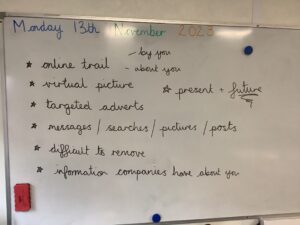 Monday 13th November 2023
- by you
★ online trail - about you
★ virtual picture ★ present + future
★ targeted adverts
★ messages / searches / pictures / posts
★ difficult to remove
★ information companies have about you